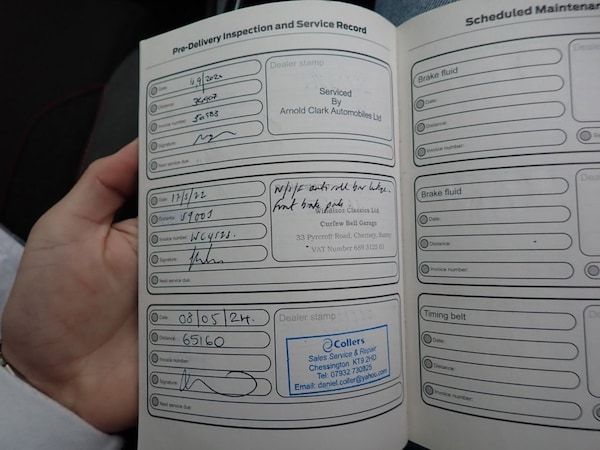 Pre-Delivery Inspection and Service Record
Date: 4/9/2020
Distance:
Invoice number:
Signature:
Next service due:
Dealer stamp
Serviced
By
Arnold Clark Automobiles Ltd
Date: 17/5/22
Distance: 59005
Invoice number:
Signature:
Next service due:
anti roll bar
front brake pads.
Windsor Classics Ltd
Curfew Bell Garage
33 Pyrcroft Road, Chertsey, Surrey
VAT Number 689 3122 61
Date: 08/05/24.
Distance: 65160
Invoice number:
Signature:
Next service due:
Dealer stamp
Collers
Sales Service & Repair
Chessington. KT9 2HD
Tel: 07932 730825
Email: daniel.coller@yahoo.com
Scheduled Maintenan
Brake fluid
Date:
Distance:
Invoice number:
Brake fluid
Date:
Distance:
Invoice number:
Timing belt
Date:
Distance:
Invoice number: